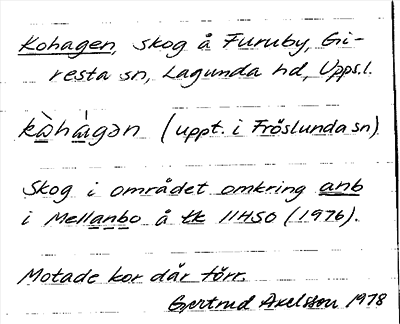 Kohagen, skog å Furuby, Gi-
resta sn, Lagunda hd, Upps.l.
kòhàgən (uppt. i Fröslunda sn)
Skog i området omkring anb
i Mellanbo å tk 11H5O (1976).
Motade kor där förr.
Gertrud Axelsson 1978